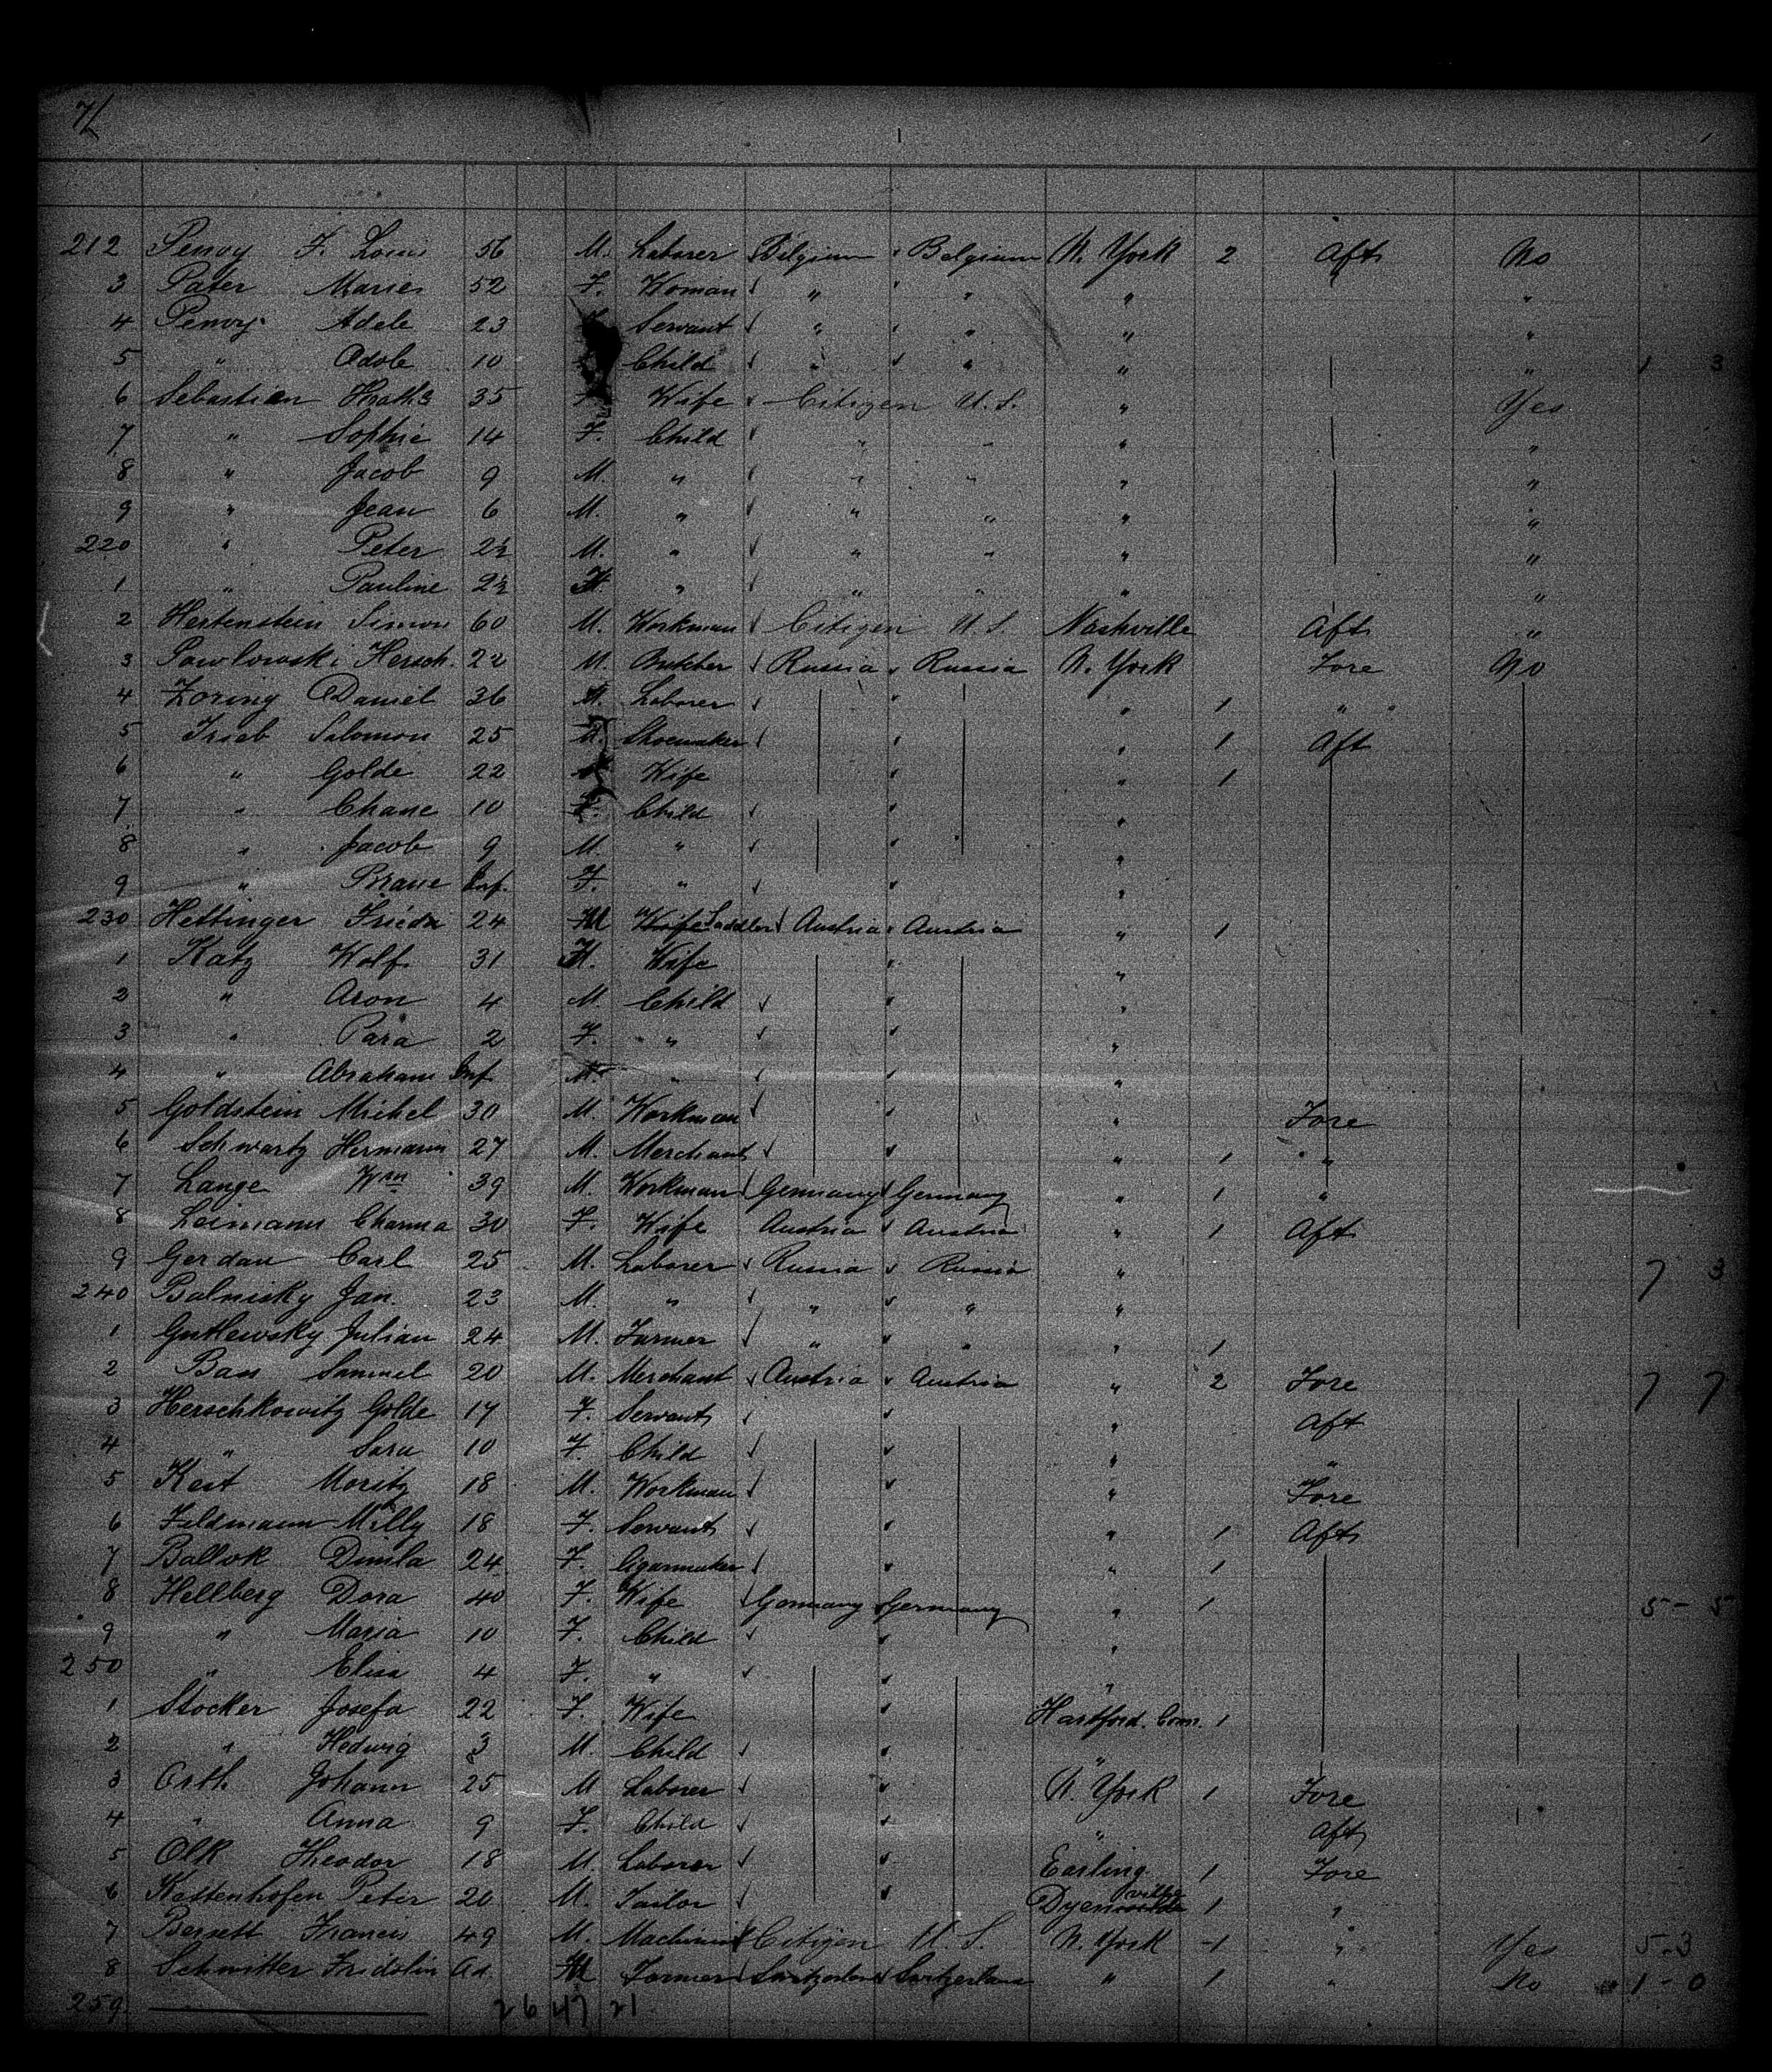 7/
212 Penoy F. Louis 56 M. Laborer Belgium Belgium N. York 2 Aft No
3 Pater Marie 52 F. Woman " " " "
4 Penoy Adele 23 Servant " " " "
5 " Adole 10 Child " " " " 1 3
6 Sebastian 35 F. Wife Citizen U.S. " Yes
7 " Sophie 14 F. Child " " " "
8 " Jacob 9 M. " " " " "
9 " Jean 6 M. " " " " "
220 " Peter 2½ M. " " " " "
1 " Pauline 2½ " " " " "
2 Hertenstein Simon 60 M. Workman Citizen U.S. Nashville Aft "
3 Pawlowski Hersch. 22 M. Butcher Russia Russia N. York Fore No
4 Zoring Daniel 36 M. Laborer " 1 "
5 Trieb Salomon 25 M. Shoemaker " 1 Aft
6 " Golde 22 Wife " 1
7 " Chane 10 F. Child "
8 " Jacob 9 M. " "
9 " Brane Inf. F. " "
230 Hettinger Frieda 24 M Saddler Austria Austria " 1
1 Katz Wolf 31 Wife "
2 " Aron 4 M. Child "
3 " Para 2 F. " "
4 " Abraham Inf M. " "
5 Goldstein Michel 30 M. Workman " Fore
6 Schwartz Hermann 27 M. Merchant " 1 "
7 Lange Wm 39 M. Workman Germany Germany " 1 "
8 Leimann Channa 30 F. Wife Austria Austria " 1 Aft
9 Gerdau Carl 25 M. Laborer Russia Russia " 7 3
240 Balnisky Jan. 23 M. " " " "
1 Gutlewsky Julian 24 M. Farmer " " " 1
2 Bass Samuel 20 M. Merchant Austria Austria " 2 Fore 7 7
3 Herschkowitz Golde 17 F. Servant " Aft
4 " Sara 10 F. Child " "
5 Kest Moritz 18 M. Workman " Fore
6 Feldmann Milly 18 F. Servant " 1 Aft
7 Ballok 24 F. Cigarmaker " 1
8 Hellberg Dora 40 F. Wife Germany Germany " 1 5 - 5
9 " Maria 10 F. Child "
250 " Elisa 4 F. " "
1 Stocker Josefa 22 F. Wife Hartford. Conn. 1
2 " Hedwig 3 M. Child "
3 Orth Johann 25 M Laborer N. York 1 Fore
4 " Anna 9 F. Child " Aft
5 Olk Theodor 18 M. Laborer Earling 1 Fore
6 Kattenhofen Peter 20 M. Tailor Dyersville 1 "
7 Bersett Francis 49 M. Machinist Citizen U.S. N. York 1 " Yes 5-3
8 Schmitter Fridolin Ad. M Farmer Switzerland Switzerland " 1 " No 1 - 0
259 26 47 21